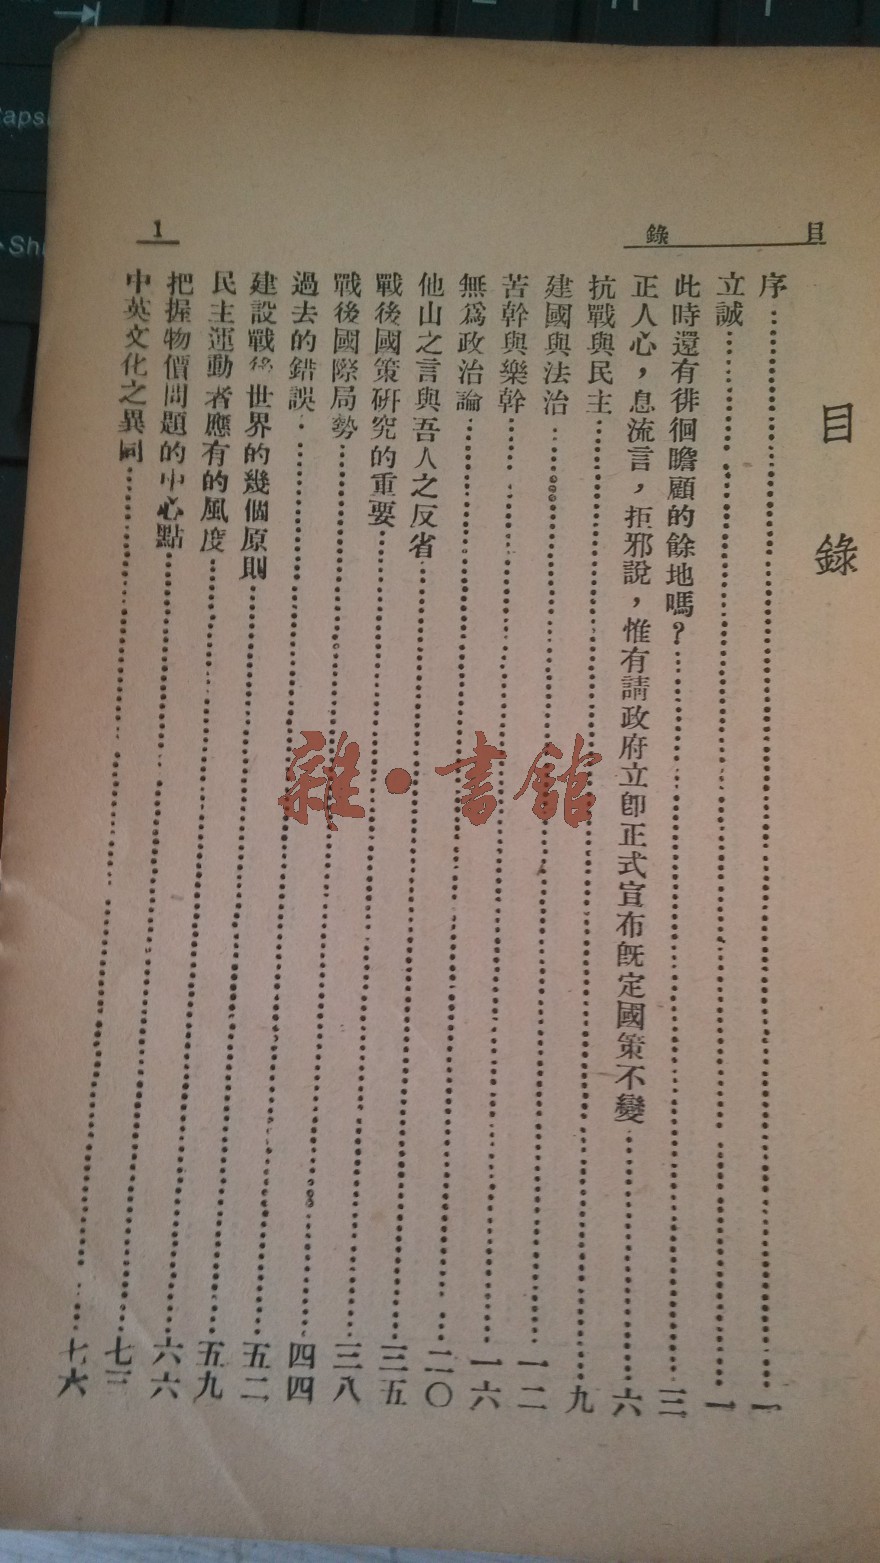 目錄
1
目錄
序……一
立誠……一
此時還有徘徊瞻顧的餘地嗎？……三
正人心，息流言，拒邪說，惟有請政府立卽正式宣布旣定國策不變……六
抗戰與民主……九
建國與法治……一二
苦幹與樂幹……一六
無爲政治論……二〇
他山之言與吾人之反省……三五
戰後國策硏究的重要……三八
戰後國際局勢……四四
過去的錯誤……五二
建設戰後世界的幾個原則……五九
民主運動者應有的風度……六六
把握物價問題的中心點……七三
中英文化之異同……七六
雜·書館
Caps
Sh